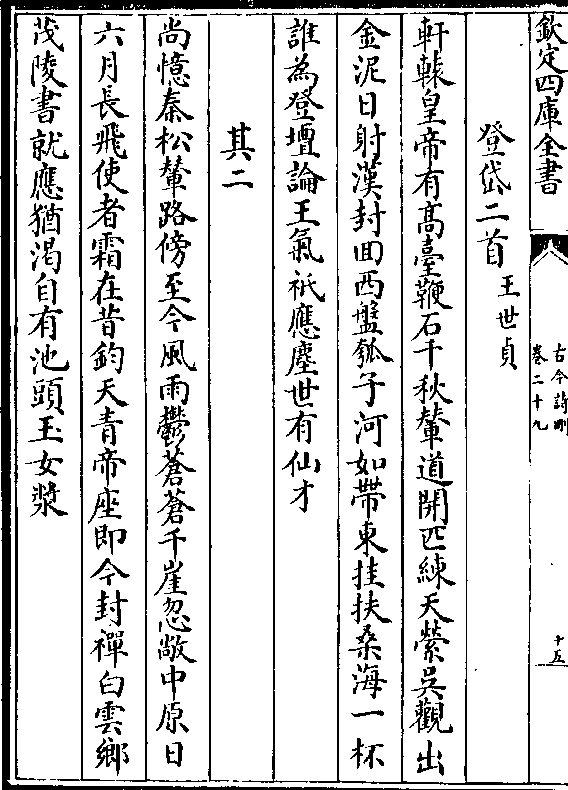 欽定四庫全書
古今詩刪
卷二十九
十五
登岱二首王世貞
軒轅皇帝有高臺鞭石千秋輦道開匹練天縈吳觀出
金泥日射漢封回西盤瓠子河如帶東挂扶桑海一杯
誰為登壇論王氣祇應塵世有仙才
其二
尚憶秦松輦路傍至今風雨鬱蒼蒼千崖忽敞中原日
六月長飛使者霜在昔鈞天青帝座即今封禪白雲鄉
茂陵書就應猶渴自有池頭玉女漿